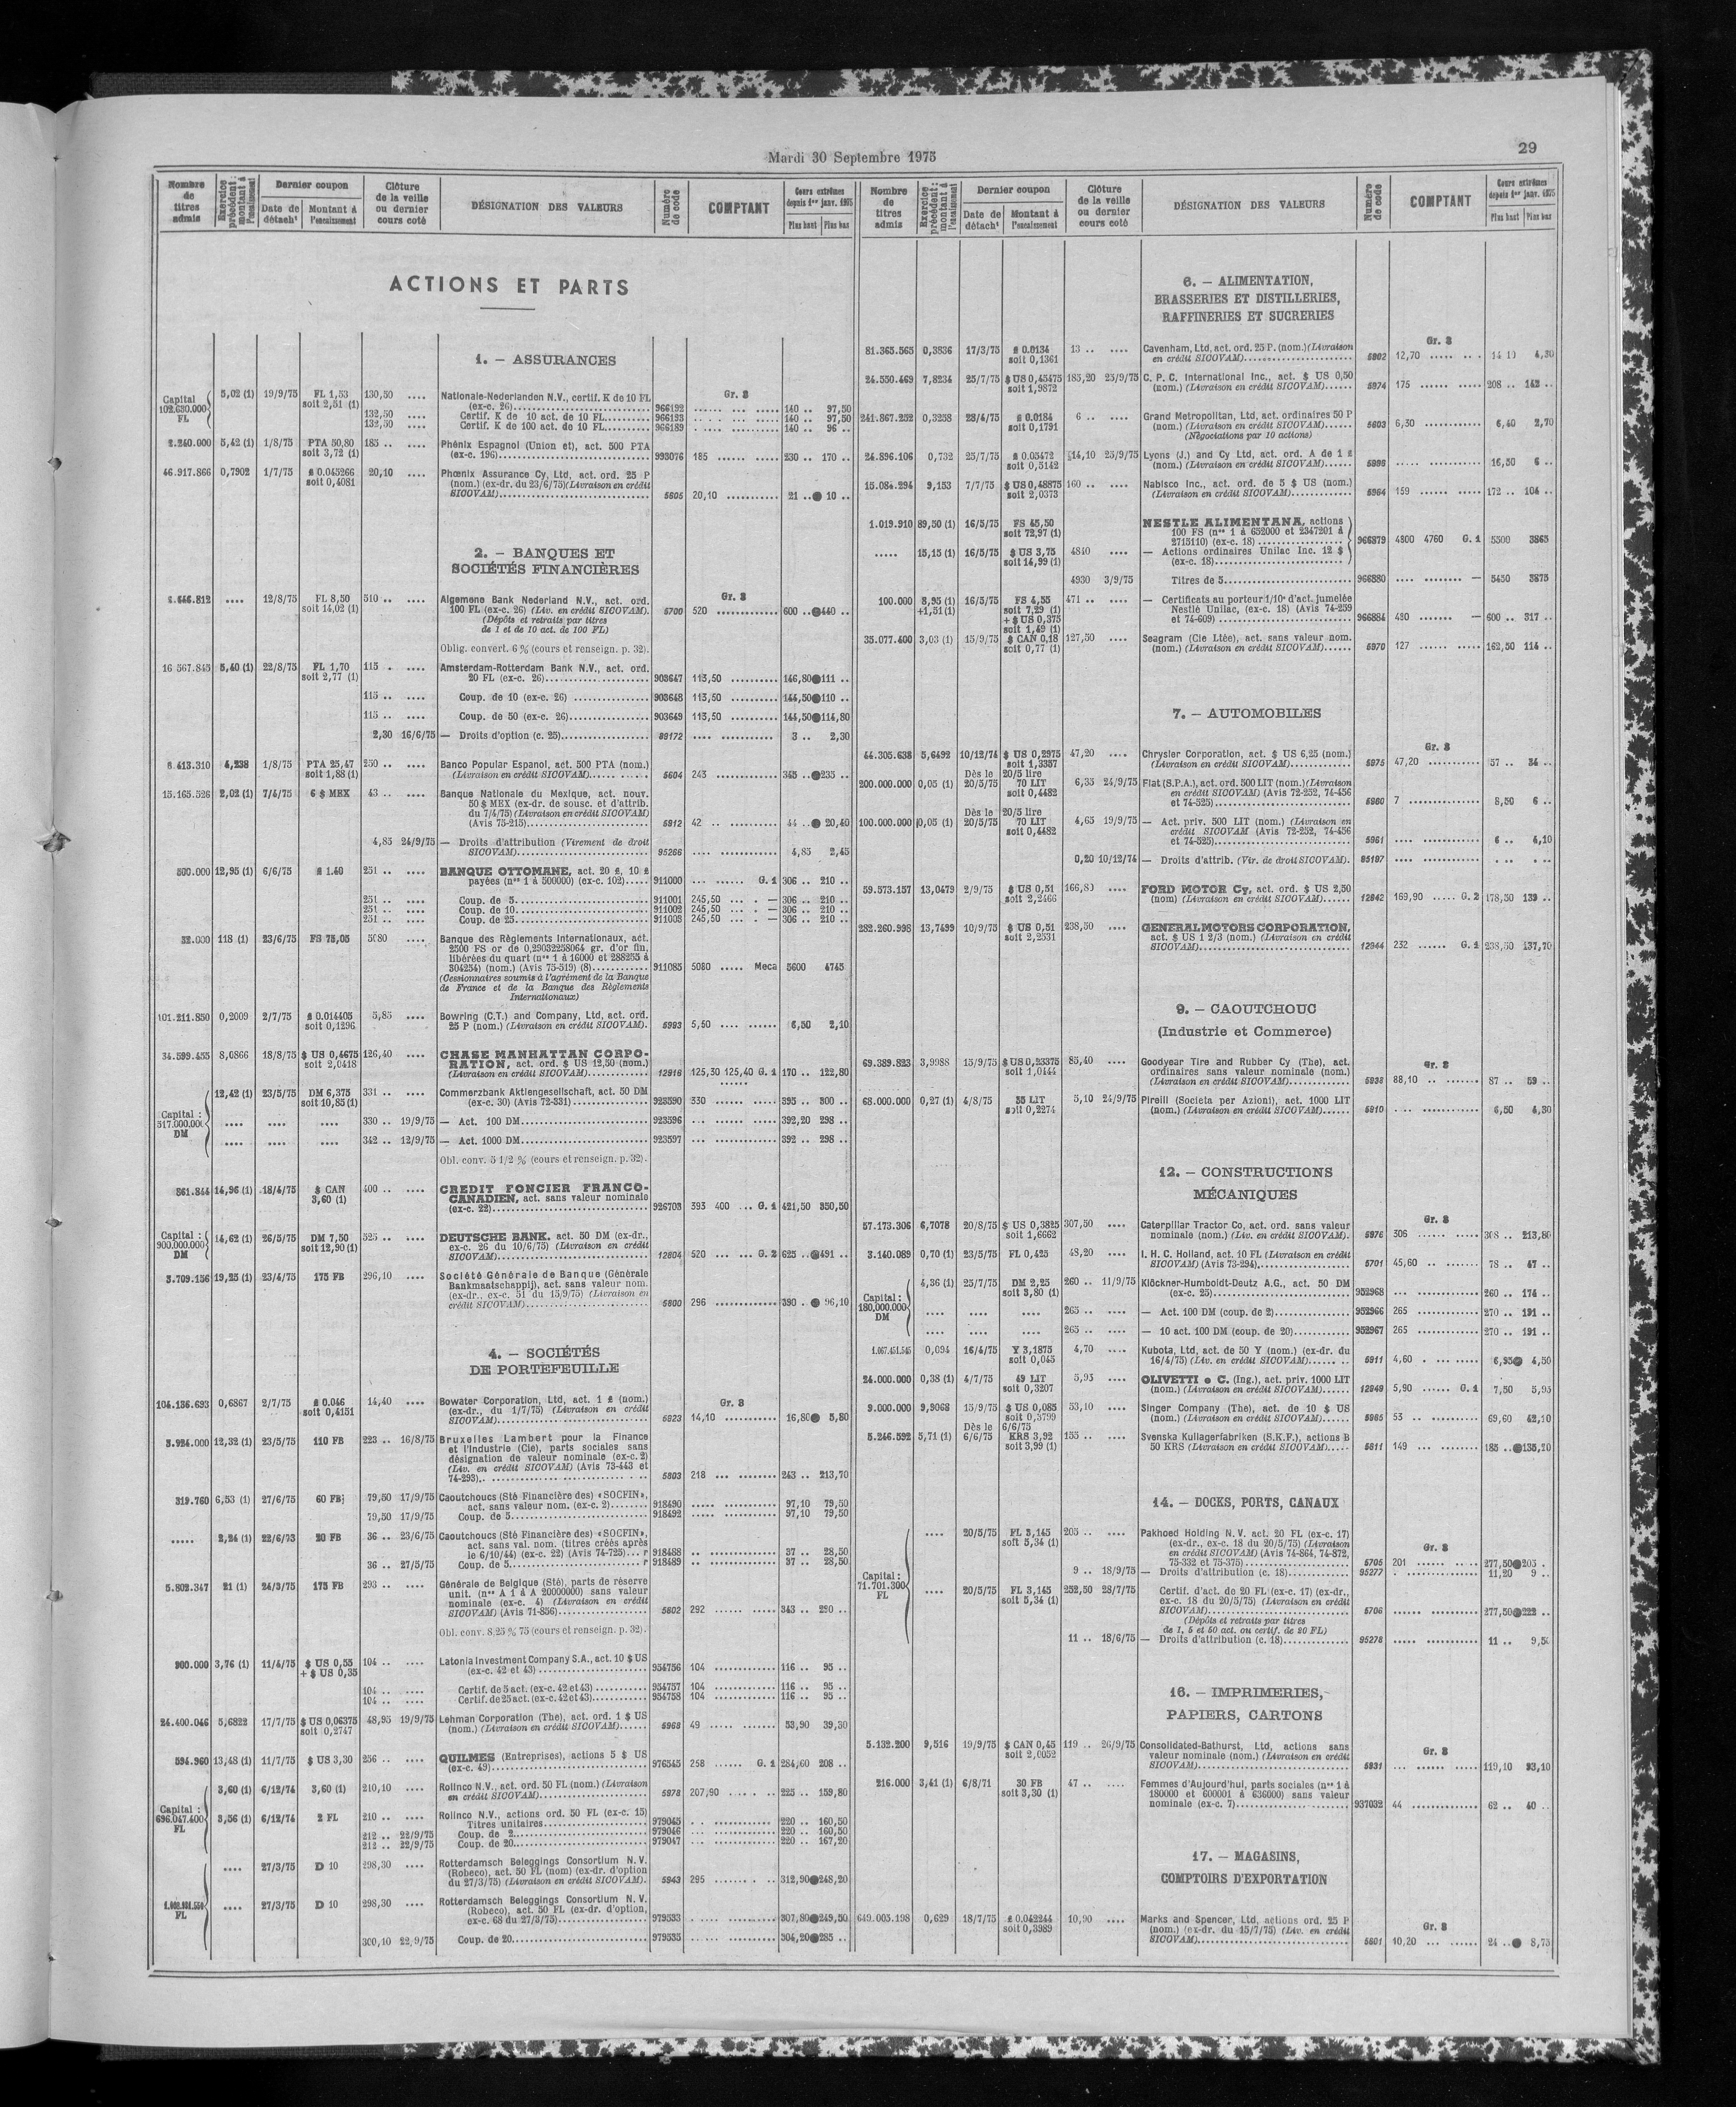 Mardi 30 Septembre 1975
29
Nombre de titres admis
Exercice précédent : montant à l'encaissement
Dernier coupon
Date de détacht
Montant à l'encaissement
Clôture de la veille ou dernier cours coté
DÉSIGNATION DES VALEURS
Numéro de code
COMPTANT
Cours extrêmes depuis 1er janv. 1975
Plus haut Plus bas
ACTIONS ET PARTS
1. — ASSURANCES
Gr. 3
Capital 102.630.000 FL
5,02 (1) 19/9/75 FL 1,53 130,50 .... Nationale-Nederlanden N.V., certif. K de 10 FL
soit 2,51 (1) (ex-c. 26) 966192 140 .. 97,50
132,50 .... Certif. K de 10 act. de 10 FL 966193 140 .. 97,50
132,50 .... Certif. K de 100 act. de 10 FL 966189 140 .. 96 ..
5,42 (1) 1/8/75 PTA 50,80 185 .. .... Phénix Espagnol (Union et), act. 500 PTA
soit 3,72 (1) (ex-c. 196) 993076 185 230 .. 170 ..
46.917.866 0,7902 1/7/75 £ 0.045266 20,10 .... Phœnix Assurance Cy, Ltd, act. ord. 25 P
soit 0,4081 (nom.) (ex-dr. du 23/6/75) (Livraison en crédit
SICOVAM) 5605 20,10 21 .. 10 ..
2. — BANQUES ET
SOCIÉTÉS FINANCIÈRES
Gr. 3
.... 12/8/75 FL 8,50 510 .. .... Algemene Bank Nederland N.V., act. ord.
soit 14,02 (1) 100 FL (ex-c. 26) (Liv. en crédit SICOVAM). 5700 520 600 .. 440 ..
(Dépôts et retraits par titres
de 1 et de 10 act. de 100 FL)
Oblig. convert. 6 % (cours et renseign. p. 32).
16 567.845 5,40 (1) 22/8/75 FL 1,70 115 . .... Amsterdam-Rotterdam Bank N.V., act. ord.
soit 2,77 (1) 20 FL (ex-c. 26) 903647 113,50 146,80 111 ..
115 .. .... Coup. de 10 (ex-c. 26) 903648 113,50 144,50 110 ..
115 .. .... Coup. de 50 (ex-c. 26) 903649 113,50 144,50 114,80
2,30 16/6/75 — Droits d'option (c. 25) 3 .. 2,30
6.413.310 4,238 1/8/75 PTA 25,47 250 .. .... Banco Popular Espanol, act. 500 PTA (nom.)
soit 1,88 (1) (Livraison en crédit SICOVAM) 5604 243 345 .. 235 ..
15.165.526 2,02 (1) 7/4/75 6 $ MEX 43 .. .... Banque Nationale du Mexique, act. nouv.
50 $ MEX (ex-dr. de sousc. et d'attrib.
du 7/4/75) (Livraison en crédit SICOVAM)
(Avis 75-215) 5912 42 .. 44 .. 20,40
4,85 24/9/75 — Droits d'attribution (Virement de droit
SICOVAM) 95266 4,85 2,45
500.000 12,95 (1) 6/6/75 £ 1.40 251 .. .... BANQUE OTTOMANE, act. 20 £, 10 £
payées (nos 1 à 500000) (ex-c. 102) 911000 G. 1 306 .. 210 ..
251 .. .... Coup. de 5 911001 245,50 — 306 .. 210 ..
251 .. .... Coup. de 10 911002 245,50 — 306 .. 210 ..
251 .. .... Coup. de 25 911003 245,50 — 306 .. 210 ..
32.000 118 (1) 23/6/75 FS 75,05 5080 .... Banque des Règlements Internationaux, act.
2500 FS or de 0,29032258064 gr. d'or fin,
libérées du quart (nos 1 à 16000 et 288255 à
304254) (nom.) (Avis 75-519) (8) 911085 5080 Meca 5600 4745
(Cessionnaires soumis à l'agrément de la Banque
de France et de la Banque des Règlements
Internationaux)
101.211.850 0,2009 2/7/75 £ 0.014405 5,85 .... Bowring (C.T.) and Company, Ltd, act. ord.
soit 0,1296 25 P (nom.) (Livraison en crédit SICOVAM). 5993 5,50 6,50 2,10
34.599.455 8,0866 18/8/75 $ US 0,4675 126,40 .... CHASE MANHATTAN CORPO-
soit 2,0418 RATION, act. ord. $ US 12,50 (nom.)
(Livraison en crédit SICOVAM) 12916 125,30 125,40 G. 1 170 .. 122,80
Capital : 517.000.000 DM
12,42 (1) 23/5/75 DM 6,375 331 .. .... Commerzbank Aktiengesellschaft, act. 50 DM
soit 10,85 (1) (ex-c. 30) (Avis 72-331) 923590 330 395 .. 300 ..
.... .... .... 330 .. 19/9/75 — Act. 100 DM 923596 392,20 298 ..
.... .... .... 342 .. 12/9/75 — Act. 1000 DM 923597 392 .. 298 ..
Obl. conv. 5 1/2 % (cours et renseign. p. 32).
861.844 14,96 (1) 18/4/75 $ CAN 400 .. .... CREDIT FONCIER FRANCO-
3,60 (1) CANADIEN, act. sans valeur nominale
(ex-c. 22) 926703 393 400 G. 1 421,50 350,50
Capital : 900.000.000 DM
14,62 (1) 26/5/75 DM 7,50 525 .. .... DEUTSCHE BANK, act. 50 DM (ex-dr.,
soit 12,90 (1) ex-c. 26 du 10/6/75) (Livraison en crédit
SICOVAM) 12804 520 G. 2 625 .. 491 ..
3.709.156 19,25 (1) 23/4/75 175 FB 296,10 .... Société Générale de Banque (Générale
Bankmaatschappij), act. sans valeur nom.
(ex-dr., ex-c. 51 du 15/9/75) (Livraison en
crédit SICOVAM) 5800 296 390 . 96,10
4. — SOCIÉTÉS
DE PORTEFEUILLE
Gr. 3
104.136.693 0,6867 2/7/75 £ 0.046 14,40 .... Bowater Corporation, Ltd, act. 1 £ (nom.)
soit 0,4151 (ex-dr., du 1/7/75) (Livraison en crédit
SICOVAM) 5923 14,10 16,80 5,80
3.924.000 12,32 (1) 23/5/75 110 FB 223 .. 16/8/75 Bruxelles Lambert pour la Finance
et l'Industrie (Cie), parts sociales sans
désignation de valeur nominale (ex-c. 2)
(Liv. en crédit SICOVAM) (Avis 73-443 et
74-293) 5803 218 243 .. 213,70
319.760 6,53 (1) 27/6/75 60 FB 79,50 17/9/75 Caoutchoucs (Sté Financière des) «SOCFIN»,
act. sans valeur nom. (ex-c. 2) 918490 97,10 79,50
79,50 17/9/75 Coup. de 5 918492 97,10 79,50
..... 2,24 (1) 22/6/73 20 FB 36 .. 23/6/75 Caoutchoucs (Sté Financière des) «SOCFIN»,
act. sans val. nom. (titres créés après
le 6/10/44) (ex-c. 22) (Avis 74-725) r 918488 37 .. 28,50
36 .. 27/5/75 Coup. de 5 r 918489 37 .. 28,50
5.802.347 21 (1) 24/3/75 175 FB 293 .. .... Générale de Belgique (Sté), parts de réserve
unit. (nos A 1 à A 20000000) sans valeur
nominale (ex-c. 4) (Livraison en crédit
SICOVAM) (Avis 71-856) 5802 292 343 .. 290 ..
Obl. conv. 8,25 % 75 (cours et renseign. p. 32).
900.000 3,76 (1) 11/4/75 $ US 0,55 104 .. .... Latonia Investment Company S.A., act. 10 $ US
+ $ US 0,35 (ex-c. 42 et 43) 954756 104 116 .. 95 ..
104 .. .... Certif. de 5 act. (ex-c. 42 et 43) 954757 104 116 .. 95 ..
104 .. .... Certif. de 25 act. (ex-c. 42 et 43) 954758 104 116 .. 95 ..
24.400.046 5,6822 17/7/75 $ US 0,06375 48,95 19/9/75 Lehman Corporation (The), act. ord. 1 $ US
soit 0,2747 (nom.) (Livraison en crédit SICOVAM) 5963 49 53,90 39,30
594.960 13,48 (1) 11/7/75 $ US 3,30 256 .. .... QUILMES (Entreprises), actions 5 $ US
(ex-c. 49) 976545 258 G. 1 284,60 208 ..
Capital : 696.047.400 FL
3,60 (1) 6/12/74 3,60 (1) 210,10 .... Rolinco N.V., act. ord. 50 FL (nom.) (Livraison
en crédit SICOVAM) 5978 207,90 225 .. 159,80
3,56 (1) 6/12/74 2 FL 210 .. .... Rolinco N.V., actions ord. 50 FL (ex-c. 15)
Titres unitaires 979045 220 .. 160,50
212 .. 22/9/75 Coup. de 2 979046 220 .. 160,50
212 .. 22/9/75 Coup. de 20 979047 220 .. 167,20
.... 27/3/75 D 10 298,30 .... Rotterdamsch Beleggings Consortium N.V.
(Robeco), act. 50 FL (nom) (ex-dr. d'option
du 27/3/75) (Livraison en crédit SICOVAM). 5943 295 312,90 248,20
FL
.... 27/3/75 D 10 298,30 .... Rotterdamsch Beleggings Consortium N.V.
(Robeco), act. 50 FL (ex-dr. d'option,
ex-c. 68 du 27/3/75) 979533 307,80 249,50
300,10 22/9/75 Coup. de 20 979535 304,20 285 ..
Nombre de titres admis
Exercice précédent : montant à l'encaissement
Dernier coupon
Date de détacht
Montant à l'encaissement
Clôture de la veille ou dernier cours coté
DÉSIGNATION DES VALEURS
Numéro de code
COMPTANT
Cours extrêmes depuis 1er janv. 1975
Plus haut Plus bas
6. — ALIMENTATION,
BRASSERIES ET DISTILLERIES,
RAFFINERIES ET SUCRERIES
Gr. 3
81.365.565 0,3836 17/3/75 £ 0.0134 13 .. .... Cavenham, Ltd, act. ord. 25 P. (nom.) (Livraison
soit 0,1361 en crédit SICOVAM) 5902 12,70 14 10 4,30
24.550.469 7,8234 25/7/75 $ US 0,45475 185,20 25/9/75 C. P. C. International Inc., act. $ US 0,50
soit 1,9872 (nom.) (Livraison en crédit SICOVAM) 5974 175 208 .. 142 ..
241.867.252 0,3258 28/4/75 £ 0.0184 6 .. .... Grand Metropolitan, Ltd, act. ordinaires 50 P
soit 0,1791 (nom.) (Livraison en crédit SICOVAM) 5603 6,30 6,40 2,70
(Négociations par 10 actions)
24.896.106 0,732 25/7/75 £ 0.05472 14,10 25/9/75 Lyons (J.) and Cy Ltd, act. ord. A de 1 £
soit 0,5142 (nom.) (Livraison en crédit SICOVAM) 16,50 6 ..
15.084.294 9,153 7/7/75 $ US 0,48875 160 .. .... Nabisco Inc., act. ord. de 5 $ US (nom.)
soit 2,0373 (Livraison en crédit SICOVAM) 5964 159 172 .. 104 ..
1.019.910 89,50 (1) 16/5/75 FS 45,50 NESTLE ALIMENTANA, actions
soit 72,97 (1) 100 FS (nos 1 à 632000 et 2347291 à
2715110) (ex-c. 18) 966879 4800 4760 G. 1 5500 3865
..... 15,15 (1) 16/5/75 $ US 3,75 4840 .... — Actions ordinaires Unilac Inc. 12 $
soit 14,99 (1) (ex-c. 18)
4930 3/9/75 Titres de 5 966880 — 5450 3875
100.000 8,95 (1) 16/5/75 FS 4,55 471 .. .... — Certificats au porteur 1/10e d'act. jumelée
+1,51 (1) soit 7,29 (1) Nestlé Unilac, (ex-c. 18) (Avis 74-259
+ $ US 0,375 et 74-609) 966884 480 — 600 .. 317 ..
soit 1,49 (1)
35.077.400 3,03 (1) 15/9/75 $ CAN 0,18 127,50 .... Seagram (Cie Ltée), act. sans valeur nom.
soit 0,77 (1) (nom.) (Livraison en crédit SICOVAM) 5970 127 162,50 114 ..
7. — AUTOMOBILES
Gr. 3
44.305.638 5,6492 10/12/74 $ US 0,2975 47,20 .... Chrysler Corporation, act. $ US 6,25 (nom.)
soit 1,3357 (Livraison en crédit SICOVAM) 5975 47,20 57 .. 34 ..
Dès le 20/5 lire
200.000.000 0,05 (1) 20/5/75 70 LIT 6,35 24/9/75 Fiat (S.P.A.), act. ord. 500 LIT (nom.) (Livraison
soit 0,4482 en crédit SICOVAM) (Avis 72-252, 74-456
et 74-525) 5960 7 8,50 6 ..
Dès le 20/5 lire
100.000.000 0,05 (1) 20/5/75 70 LIT 4,65 19/9/75 — Act. priv. 500 LIT (nom.) (Livraison en
soit 0,4482 crédit SICOVAM (Avis 72-252, 74-456
et 74-525) 5961 6 .. 4,10
0,20 10/12/74 — Droits d'attrib. (Vir. de droit SICOVAM). 95197
59.573.157 13,0479 2/9/75 $ US 0,51 166,80 .... FORD MOTOR Cy, act. ord. $ US 2,50
soit 2,2466 (nom) (Livraison en crédit SICOVAM) 12842 169,90 G. 2 178,50 139 ..
282.260.998 13,7499 10/9/75 $ US 0,51 238,50 .... GENERAL MOTORS CORPORATION,
soit 2,2531 act. $ US 1 2/3 (nom.) (Livraison en crédit
SICOVAM) 12944 232 G. 1 238,50 137,70
9. — CAOUTCHOUC
(Industrie et Commerce)
Gr. 3
69.389.823 3,9988 15/9/75 $ US 0,23375 85,40 .... Goodyear Tire and Rubber Cy (The), act.
soit 1,0444 ordinaires sans valeur nominale (nom.)
(Livraison en crédit SICOVAM) 5938 88,10 87 .. 59 ..
68.000.000 0,27 (1) 4/8/75 35 LIT 5,10 24/9/75 Pirelli (Societa per Azioni), act. 1000 LIT
soit 0,2274 (nom.) (Livraison en crédit SICOVAM) 5910 6,50 4,30
12. — CONSTRUCTIONS
MÉCANIQUES
Gr. 3
57.173.306 6,7078 20/8/75 $ US 0,3825 307,50 .... Caterpillar Tractor Co, act. ord. sans valeur
soit 1,6662 nominale (nom.) (Liv. en crédit SICOVAM). 5976 306 308 .. 213,80
3.140.089 0,70 (1) 23/5/75 FL 0,425 48,20 .... I. H. C. Holland, act. 10 FL (Livraison en crédit
SICOVAM) (Avis 73-294) 5701 45,60 78 .. 47 ..
Capital : 180.000.000 DM
4,36 (1) 25/7/75 DM 2,25 260 .. 11/9/75 Klöckner-Humboldt-Deutz A.G., act. 50 DM
soit 3,80 (1) (ex-c. 25) 952968 260 .. 174 ..
.... .... .... 265 .. .... — Act. 100 DM (coup. de 2) 952966 265 270 .. 191 ..
.... .... .... 265 .. .... — 10 act. 100 DM (coup. de 20) 952967 265 270 .. 191 ..
1.067.451.545 0,694 16/4/75 Y 3,1875 4,70 .... Kubota, Ltd, act. de 50 Y (nom.) (ex-dr. du
soit 0,045 16/4/75) (Liv. en crédit SICOVAM) 5911 4,60 6,95 4,50
24.000.000 0,38 (1) 4/7/75 49 LIT 5,95 .... OLIVETTI e C. (Ing.), act. priv. 1000 LIT
soit 0,3207 (nom.) (Livraison en crédit SICOVAM) 12949 5,90 G. 1 7,50 5,95
9.000.000 9,3068 15/9/75 $ US 0,085 53,10 .... Singer Company (The), act. de 10 $ US
soit 0,3799 (nom.) (Livraison en crédit SICOVAM) 5965 53 69,60 42,10
Dès le 6/6/75
5.246.592 5,71 (1) 6/6/75 KRS 3,92 155 .. .... Svenska Kullagerfabriken (S.K.F.), actions B
soit 3,99 (1) 50 KRS (Livraison en crédit SICOVAM) 5811 149 185 .. 135,20
14. — DOCKS, PORTS, CANAUX
Gr. 3
Capital : 71.701.300 FL
.... 20/5/75 FL 3,145 205 .. .... Pakhoed Holding N.V. act. 20 FL (ex-c. 17)
soit 5,34 (1) (ex-dr., ex-c. 18 du 20/5/75) (Livraison
en crédit SICOVAM) (Avis 74-864, 74-872,
75-332 et 75-375) 5705 201 277,50 205 .
9 .. 18/9/75 — Droits d'attribution (c. 18) 95277 11,20 9 ..
.... 20/5/75 FL 3,145 252,50 28/7/75 Certif. d'act. de 20 FL (ex-c. 17) (ex-dr.,
soit 5,34 (1) ex-c. 18 du 20/5/75) (Livraison en crédit
SICOVAM) 5706 277,50 222 ..
(Dépôts et retraits par titres
de 1, 5 et 50 act. ou certif. de 20 FL)
11 .. 18/6/75 — Droits d'attribution (c. 18) 95278 11 .. 9,50
16. — IMPRIMERIES,
PAPIERS, CARTONS
Gr. 3
5.132.200 9,516 19/9/75 $ CAN 0,45 119 .. 26/9/75 Consolidated-Bathurst, Ltd, actions sans
soit 2,0052 valeur nominale (nom.) (Livraison en crédit
SICOVAM) 5931 119,10 93,10
216.000 3,41 (1) 6/8/71 30 FB 47 .. .... Femmes d'Aujourd'hui, parts sociales (nos 1 à
soit 3,30 (1) 180000 et 600001 à 636000) sans valeur
nominale (ex-c. 7) 937032 44 62 .. 40 ..
17. — MAGASINS,
COMPTOIRS D'EXPORTATION
Gr. 3
649.005.198 0,629 18/7/75 £ 0.042244 10,90 .... Marks and Spencer, Ltd, actions ord. 25 P
soit 0,3989 (nom.) (ex-dr. du 15/7/75) (Liv. en crédit
SICOVAM) 5601 10,20 24 .. 8,75